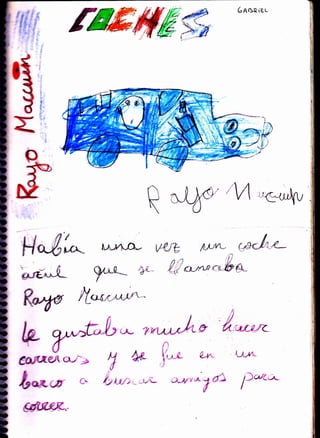 GABRIEL
COCHES
Rayo Macuin
Rayo Macuin
Había una vez un coche
azul que se llamaba
Rayo Macuin.
Le gustaba mucho hacer
carreras y se fue en un
barco a buscar amigos para
correr.